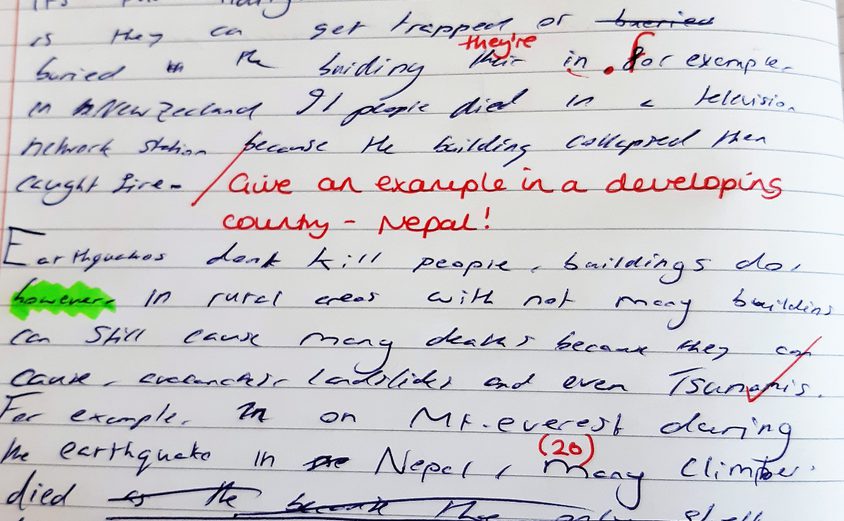 is they can get trapped or buried
they're
buried in the building their in . for example.
in New Zealand 91 people died in a television
network station because the building collapsed then
caught fire. Give an example in a developing
country - Nepal!
Earthquakes dont kill people, buildings do,
however, in rural areas with not many buildins
can still cause many deaths because they can
cause, avalanches, landslides and even Tsunamis.
For example. in on Mt. everest during
(20)
the earthquake in the Nepal, many climber
died as the because the only